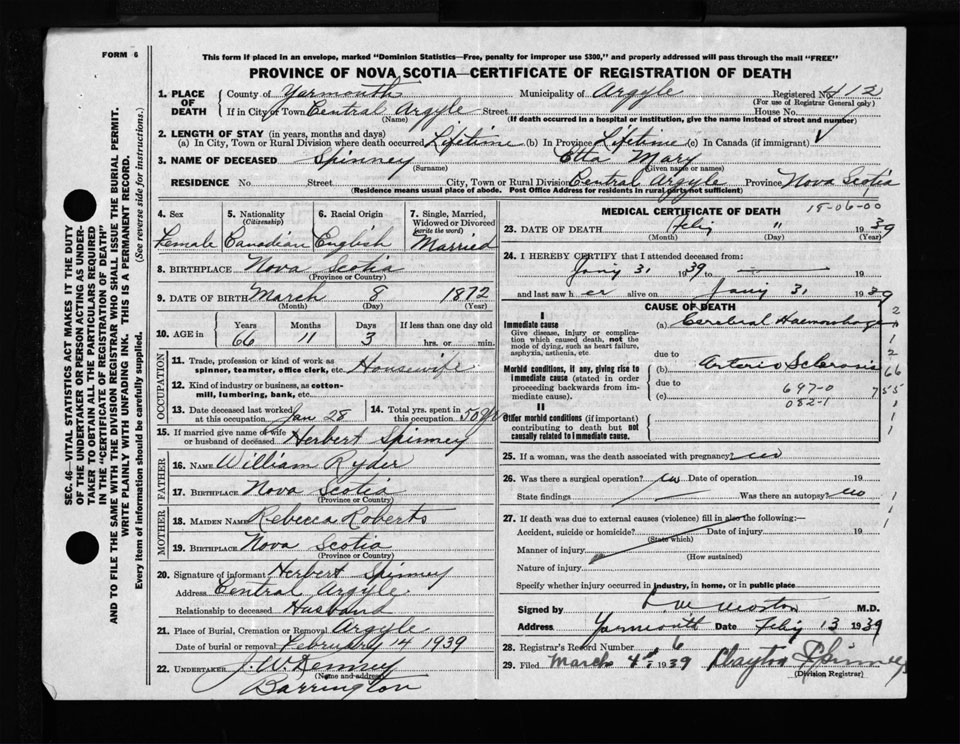 FORM 6
This form if placed in an envelope, marked "Dominion Statistics—Free, penalty for improper use $300," and properly addressed will pass through the mail "FREE"
PROVINCE OF NOVA SCOTIA—CERTIFICATE OF REGISTRATION OF DEATH
SEC. 46—VITAL STATISTICS ACT MAKES IT THE DUTY
OF THE UNDERTAKER OR PERSON ACTING AS UNDER-
TAKER TO OBTAIN ALL THE PARTICULARS REQUIRED
IN THE "CERTIFICATE OF REGISTRATION OF DEATH"
AND TO FILE THE SAME WITH THE DIVISION REGISTRAR WHO SHALL ISSUE THE BURIAL PERMIT.
WRITE PLAINLY WITH UNFADING INK. THIS IS A PERMANENT RECORD.
Every item of information should be carefully supplied. (See reverse side for instructions.)
1. PLACE OF DEATH County of Yarmouth Municipality of Argyle Registered No. 112
(For use of Registrar General only)
If in City or Town Central Argyle Street House No.
(Name) (If death occurred in a hospital or institution, give the name instead of street and number)
2. LENGTH OF STAY (in years, months and days)
(a) In City, Town or Rural Division where death occurred Lifetime (b) In Province Lifetime (c) In Canada (if immigrant)
3. NAME OF DECEASED Spinney Etta Mary
(Surname) (Given name or names)
RESIDENCE No. Street City, Town or Rural Division Central Argyle Province Nova Scotia
(Residence means usual place of abode. Post Office Address for residents in rural parts not sufficient)
4. Sex Female
5. Nationality (Citizenship) Canadian
6. Racial Origin English
7. Single, Married, Widowed or Divorced (write the word) Married
8. BIRTHPLACE Nova Scotia
(Province or Country)
9. DATE OF BIRTH March 8 1872
(Month) (Day) (Year)
10. AGE in Years 66 Months 11 Days 3 If less than one day old hrs. or min.
OCCUPATION
11. Trade, profession or kind of work as spinner, teamster, office clerk, etc. Housewife
12. Kind of industry or business, as cotton-mill, lumbering, bank, etc.
13. Date deceased last worked at this occupation Jan 28
14. Total yrs. spent in this occupation 50 yrs
15. If married give name of wife or husband of deceased Herbert Spinney
FATHER
16. NAME William Ryder
17. BIRTHPLACE Nova Scotia
(Province or Country)
MOTHER
18. MAIDEN NAME Rebecca Roberts
19. BIRTHPLACE Nova Scotia
(Province or Country)
20. Signature of informant Herbert Spinney
Address Central Argyle
Relationship to deceased Husband
21. Place of Burial, Cremation or Removal Argyle
Date of burial or removal February 14 1939
22. UNDERTAKER J. W. Denney
(Name and address)
Barrington
MEDICAL CERTIFICATE OF DEATH 18-06-00
23. DATE OF DEATH Feby 11 1939
(Month) (Day) (Year)
24. I HEREBY CERTIFY that I attended deceased from:
Jany 31 1939 to 19
and last saw her alive on Jany 31 1939
CAUSE OF DEATH
I
Immediate cause
Give disease, injury or complication which caused death, not the mode of dying, such as heart failure, asphyxia, asthenia, etc.
(a) Cerebral Haemorrhage
due to
Morbid conditions, if any, giving rise to immediate cause (stated in order proceeding backwards from immediate cause).
(b) Arterio Sclerosis
due to
(c) 697-0
082-1
II
Other morbid conditions (if important) contributing to death but not causally related to immediate cause.
2
1
2
66
755
1
1
1
25. If a woman, was the death associated with pregnancy no
26. Was there a surgical operation? no Date of operation 19
State findings Was there an autopsy no
27. If death was due to external causes (violence) fill in also the following:—
Accident, suicide or homicide? Date of injury 19
(State which)
Manner of injury
(How sustained)
Nature of injury
Specify whether injury occurred in industry, in home, or in public place
Signed by Morton M.D.
Address Yarmouth Date Feby 13 1939
28. Registrar's Record Number 6
29. Filed March 4th 1939 Clayton Spinney
(Division Registrar)